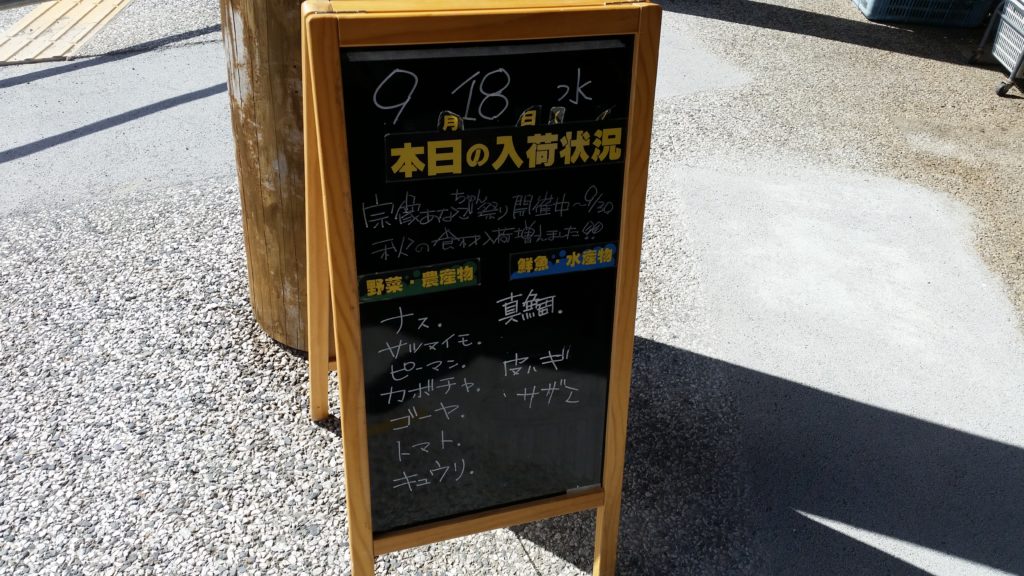 9月18日 水
本日の入荷状況
祭り開催中〜9/30
秋の食材入荷増えました
野菜・農産物
鮮魚・水産物
ナス.
サルマイモ.
ピーマン.
カボチャ.
ゴーヤ.
トマト.
キュウリ.
真鯛.
皮ハギ
サザエ